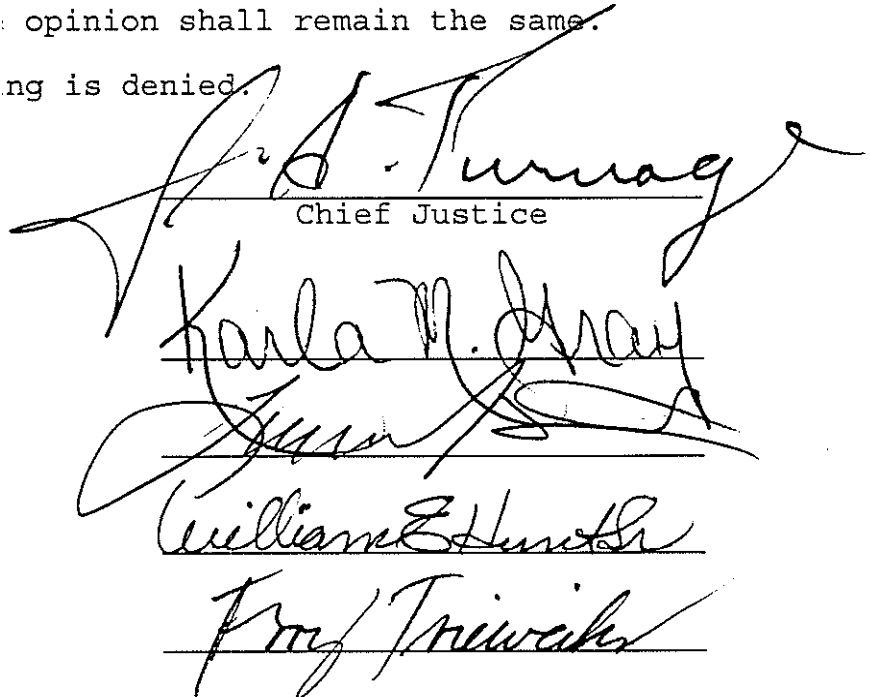 opinion shall remain the same.
ng is denied.
J. A. Turnage
Chief Justice
Karla M. Gray
William E Hunt Sr
Terry Trieweiler